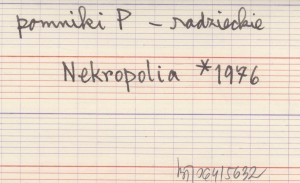 pomniki P - radzieckie
Nekropolia *1976
06415632